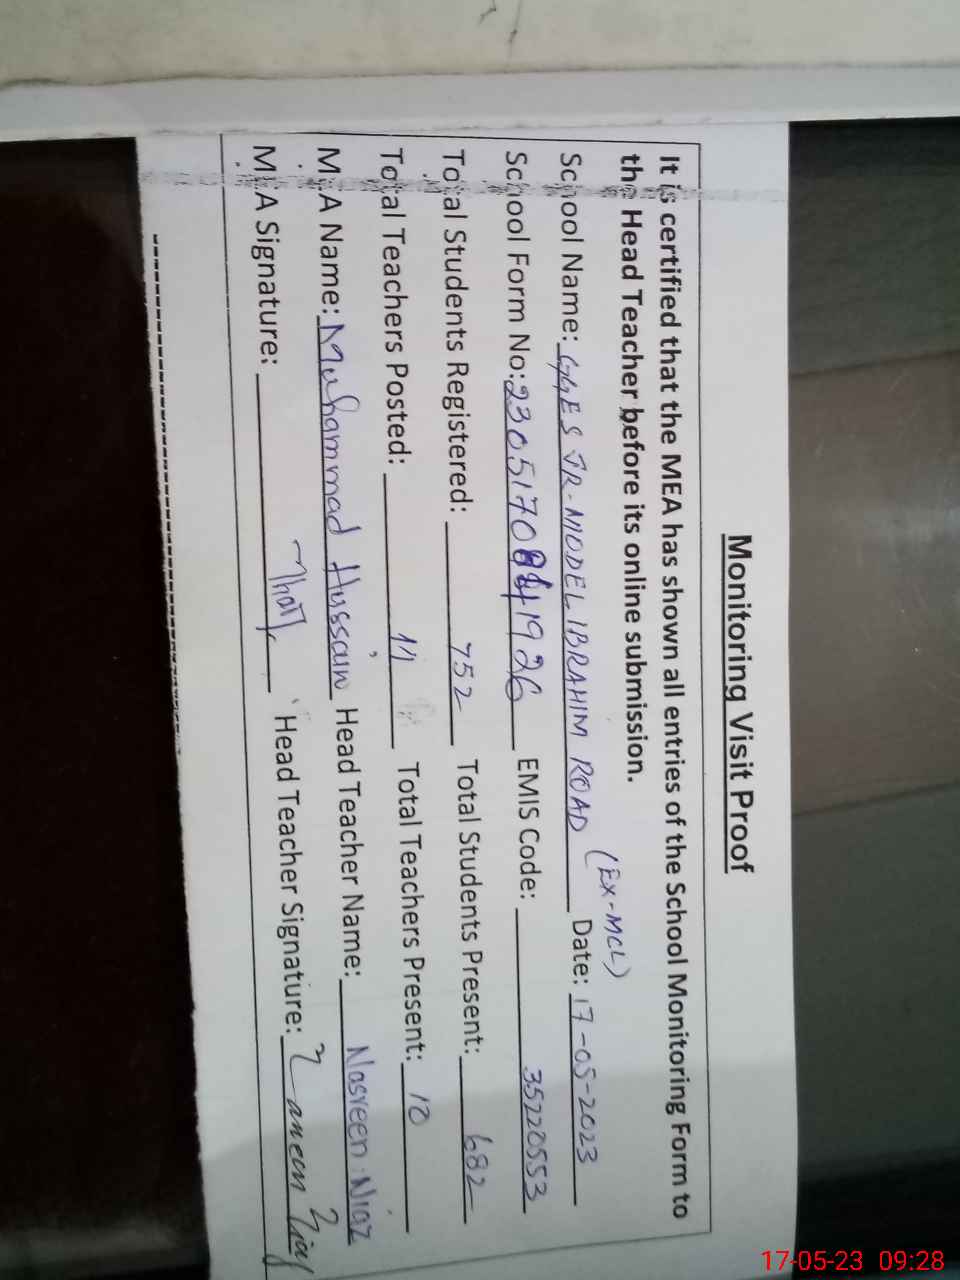 Monitoring Visit Proof
It is certified that the MEA has shown all entries of the School Monitoring Form to
the Head Teacher before its online submission.
(EX-MCL)
School Name: GGES JR-MIDDEL IBRAHIM ROAD Date: 17-05-2023
School Form No: EMIS Code: 35220553
Total Students Registered: 752 Total Students Present: 682
Total Teachers Posted: 11 Total Teachers Present: 10
MEA Name: Muhammad Hussain Head Teacher Name: Nasreen Niaz
MEA Signature: Head Teacher Signature:
17-05-23 09:28